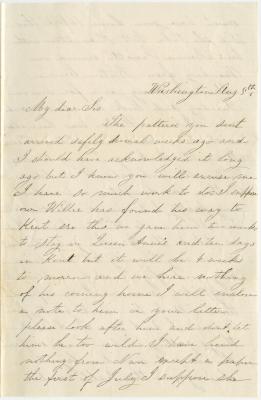 Washington Aug 5th
My dear Sis.
The pattern you sent
arrived safely several weeks ago and
I should have acknowledged it long
ago but I knew you will excuse me
I have so much work to do. I suppose
our Willie has found his way to
Kent ere this we gave him 2 weeks
to stay in Queen Anne's and ten days
in Kent but it will be 4 weeks
to morrow and we hear nothing
of his coming home I will enclose
a note to him in your letter
please look after him and dont let
him be too wild. I have heard
nothing from Nan except a paper
the first of July I suppose she